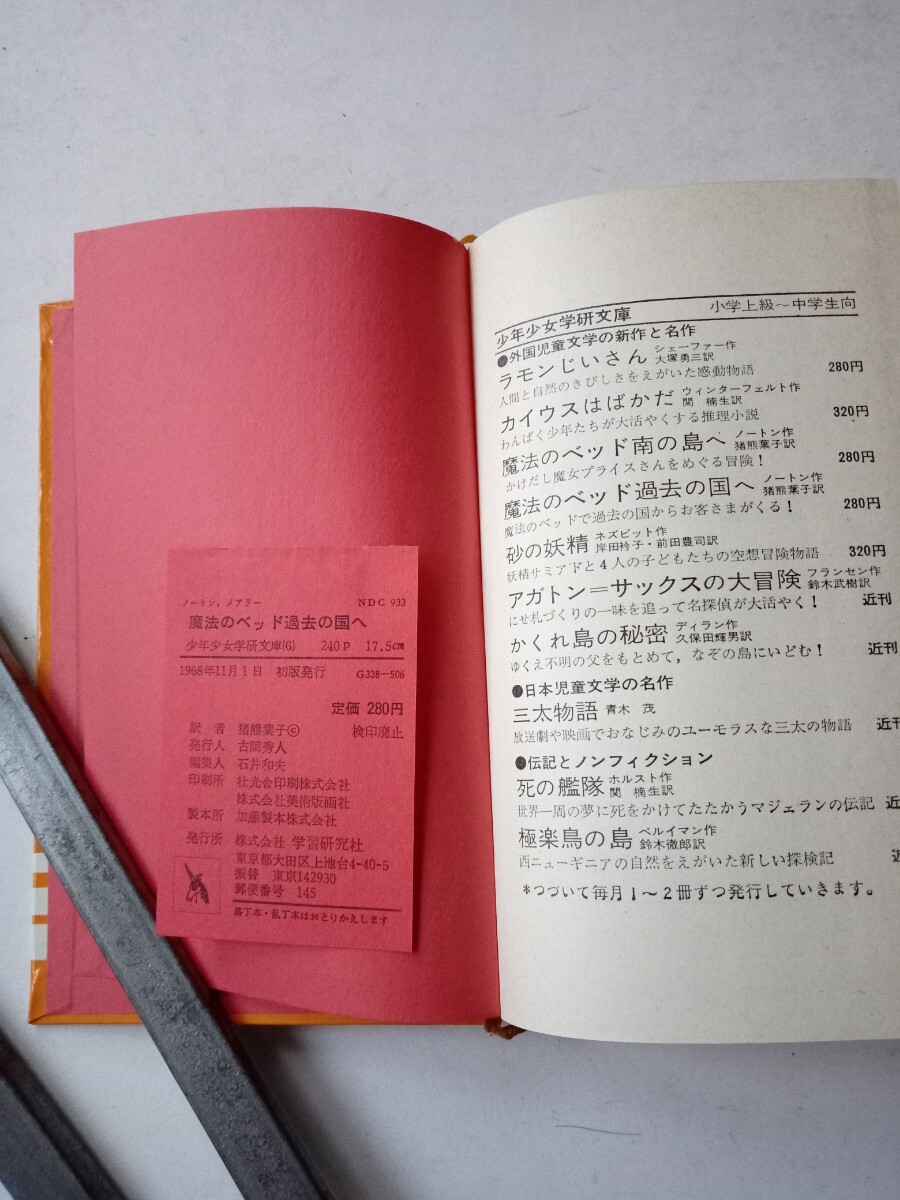 ノートン,メアリー　NDC 933
魔法のベッド過去の国へ
少年少女学研文庫(6)　240P　17.5cm
1968年11月1日　初版発行　G338—506
定価 280円
訳者　猪熊葉子©　検印廃止
発行人　古岡秀人
編集人　石井和夫
印刷所　壮光舎印刷株式会社
株式会社美術版画社
製本所　加藤製本株式会社
発行所　株式会社 学習研究社
東京都大田区上池台4-40-5
振替　東京142930
郵便番号　145
落丁本・乱丁本はおとりかえします
少年少女学研文庫　小学上級〜中学生向
●外国児童文学の新作と名作
ラモンじいさん　シェーファー作 大塚勇三訳
人間と自然のきびしさをえがいた感動物語　280円
カイウスはばかだ　ウィンターフェルト作 関　楠生訳
わんぱく少年たちが大活やくする推理小説　320円
魔法のベッド南の島へ　ノートン作 猪熊葉子訳
かけだし魔女プライスさんをめぐる冒険！　280円
魔法のベッド過去の国へ　ノートン作 猪熊葉子訳
魔法のベッドで過去の国からお客さまがくる！　280円
砂の妖精　ネズビット作 岸田衿子・前田豊司訳
妖精サミアドと4人の子どもたちの空想冒険物語　320円
アガトン＝サックスの大冒険　フランセン作 鈴木武樹訳
にせ札づくりの一味を追って名探偵が大活やく！　近刊
かくれ島の秘密　ディラン作 久保田輝男訳
ゆくえ不明の父をもとめて，なぞの島にいどむ！　近刊
●日本児童文学の名作
三太物語　青木　茂
放送劇や映画でおなじみのユーモラスな三太の物語　近刊
●伝記とノンフィクション
死の艦隊　ホルスト作 関　楠生訳
世界一周の夢に死をかけてたたかうマジェランの伝記　近
極楽鳥の島　ベルイマン作 鈴木徹郎訳
西ニューギニアの自然をえがいた新しい探検記　近
＊つづいて毎月1〜2冊ずつ発行していきます。